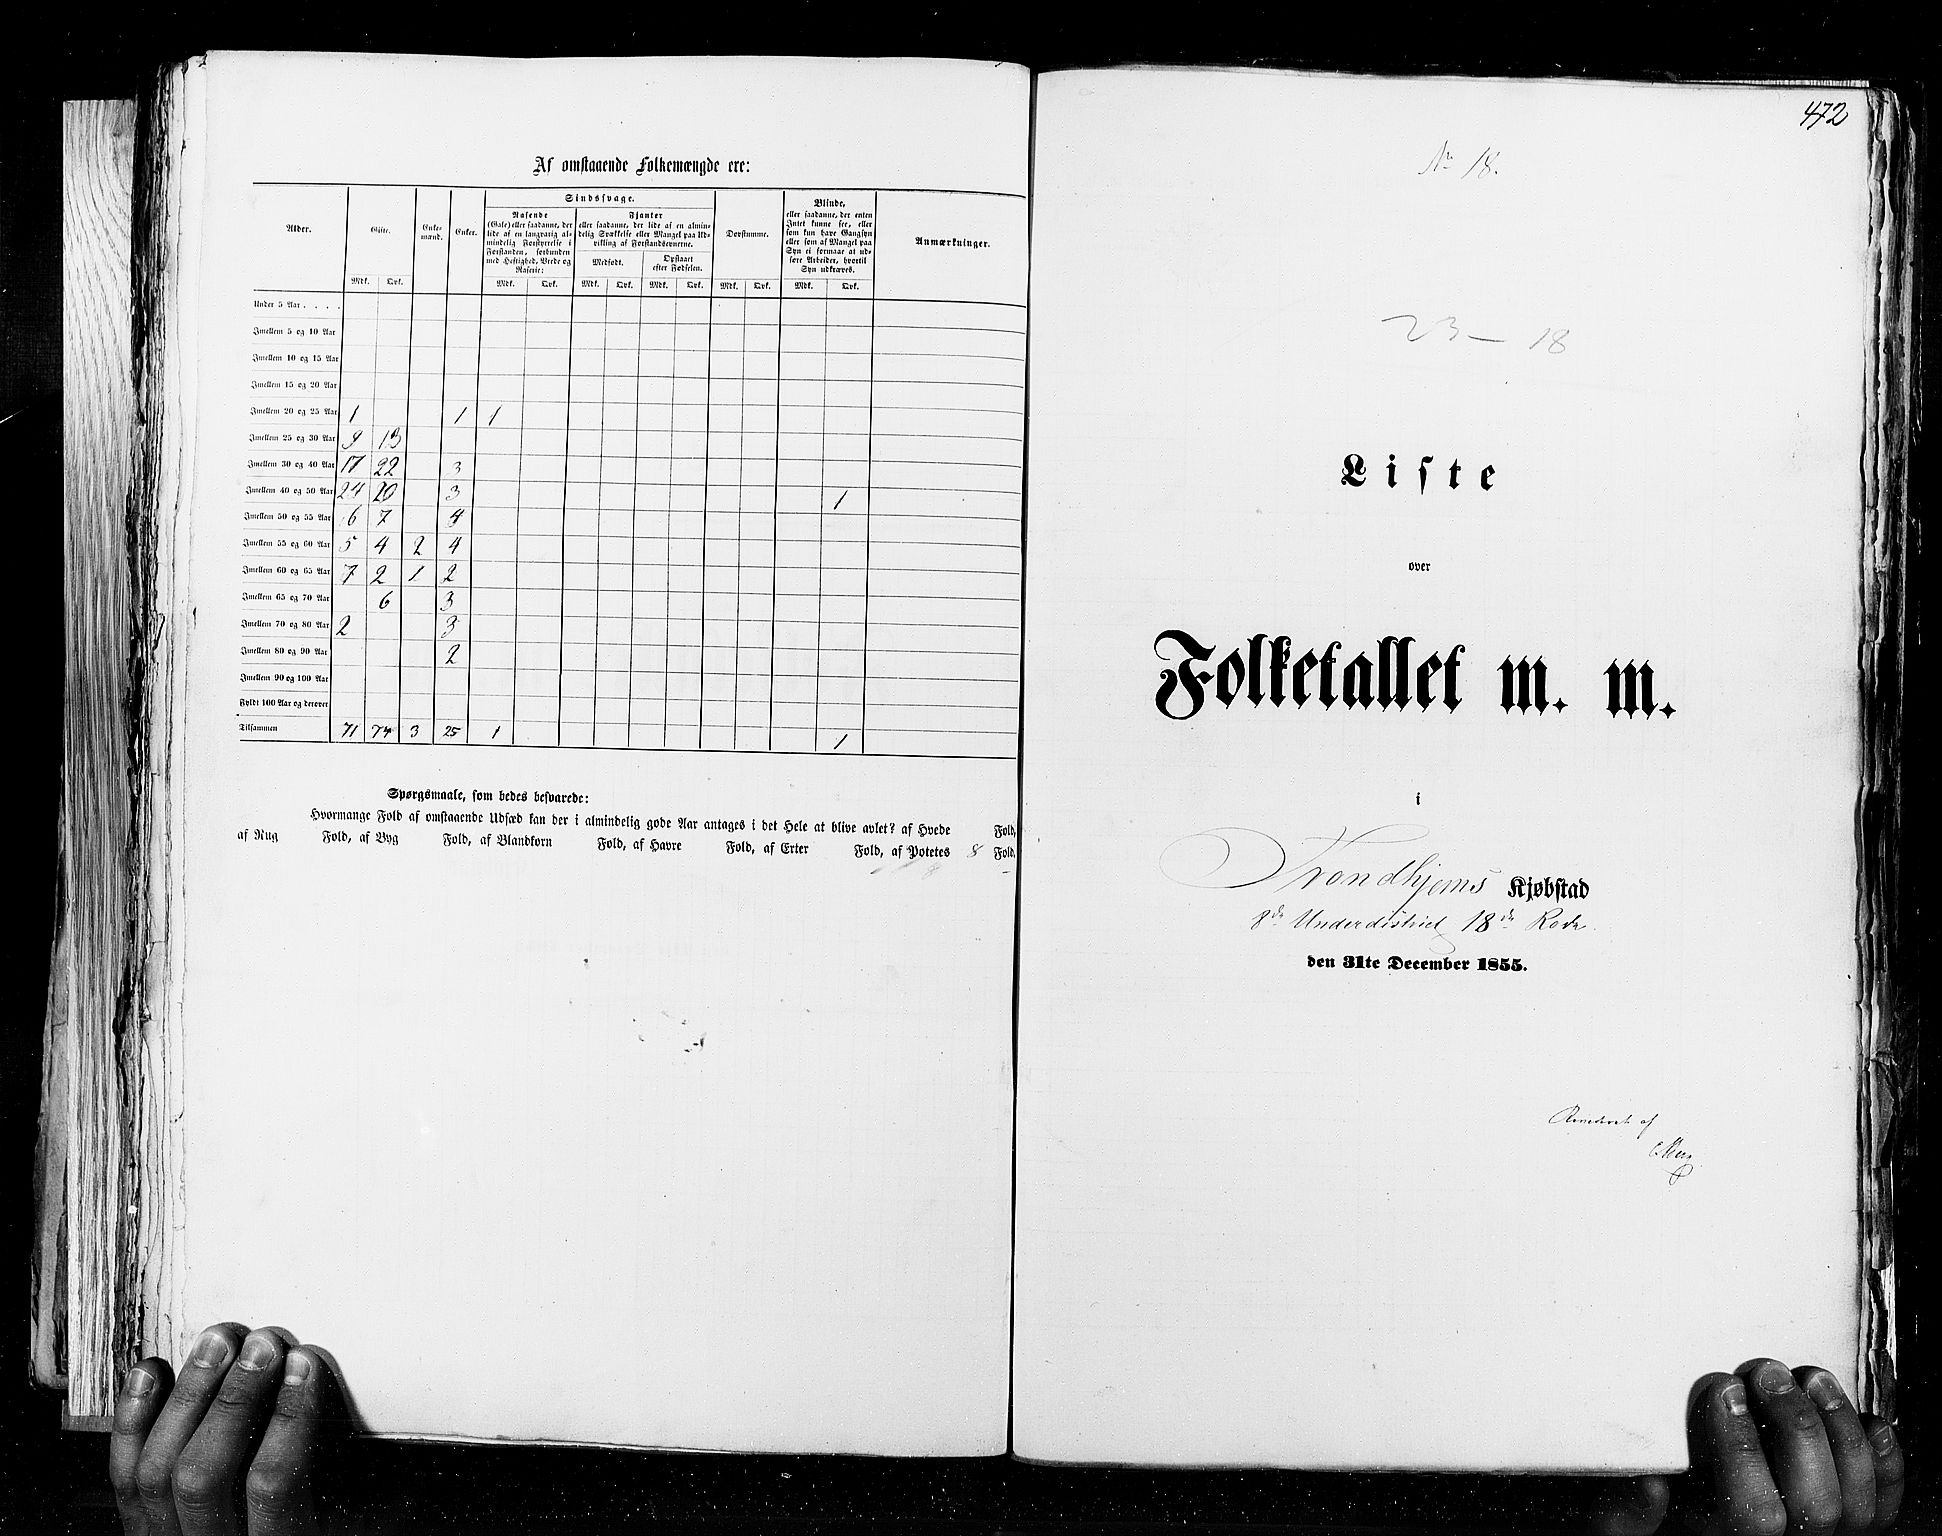 Af omstaaende Folkemængde ere:
Alder. Gifte. Enke-mænd. Enker. Sindssvage. Døvstumme. Blinde, Anmærkninger.
Rasende
(Gale) eller saadanne, der
lide af en langvarig al-
mindelig Forstyrrelse i
Forstanden, forbunden
med Heftighed, Vrede og
Raseri:
Fjanter
eller saadanne, der lide af en almin-
delig Svækkelse eller Mangel paa Ud-
vikling af Forstandsevnerne.
Medfødt. Opstaaet
efter Fødselen.
eller saadanne, der enten
Intet kunne see, eller
som kun have Gangsyn
eller som af Mangel paa
Syn ei formaae at ud-
føre Arbeider, hvortil
Syn udkræves.
Mdk. Qvk. Mdk. Qvk. Mdk. Qvk. Mdk. Qvk. Mdk. Qvk. Mdk. Qvk.
Under 5 Aar . . . .
Imellem 5 og 10 Aar
Imellem 10 og 15 Aar
Imellem 15 og 20 Aar
Imellem 20 og 25 Aar 1 1 1
Imellem 25 og 30 Aar 9 13
Imellem 30 og 40 Aar 17 22 3
Imellem 40 og 50 Aar 24 20 3 1
Imellem 50 og 55 Aar 6 7 4
Imellem 55 og 60 Aar 5 4 2 4
Imellem 60 og 65 Aar 7 2 1 2
Imellem 65 og 70 Aar 6 3
Imellem 70 og 80 Aar 2 3
Imellem 80 og 90 Aar 2
Imellem 90 og 100 Aar
Fyldt 100 Aar og derover
Tilsammen 71 74 3 25 1 1
Spørgsmaale, som bedes besvarede:
Hvormange Fold af omstaaende Udsæd kan der i almindelig gode Aar antages i det Hele at blive avlet? af Hvede Fold,
af Rug Fold, af Byg Fold, af Blandkorn Fold, af Havre Fold, af Erter Fold, af Potetes 8 Fold.
472
No 18.
23 — 18
Liste
over
Folketallet m. m.
i
Trondhjems Kjøbstad
8de Underdistrict 18de Rode
den 31te December 1855.
Revideret af